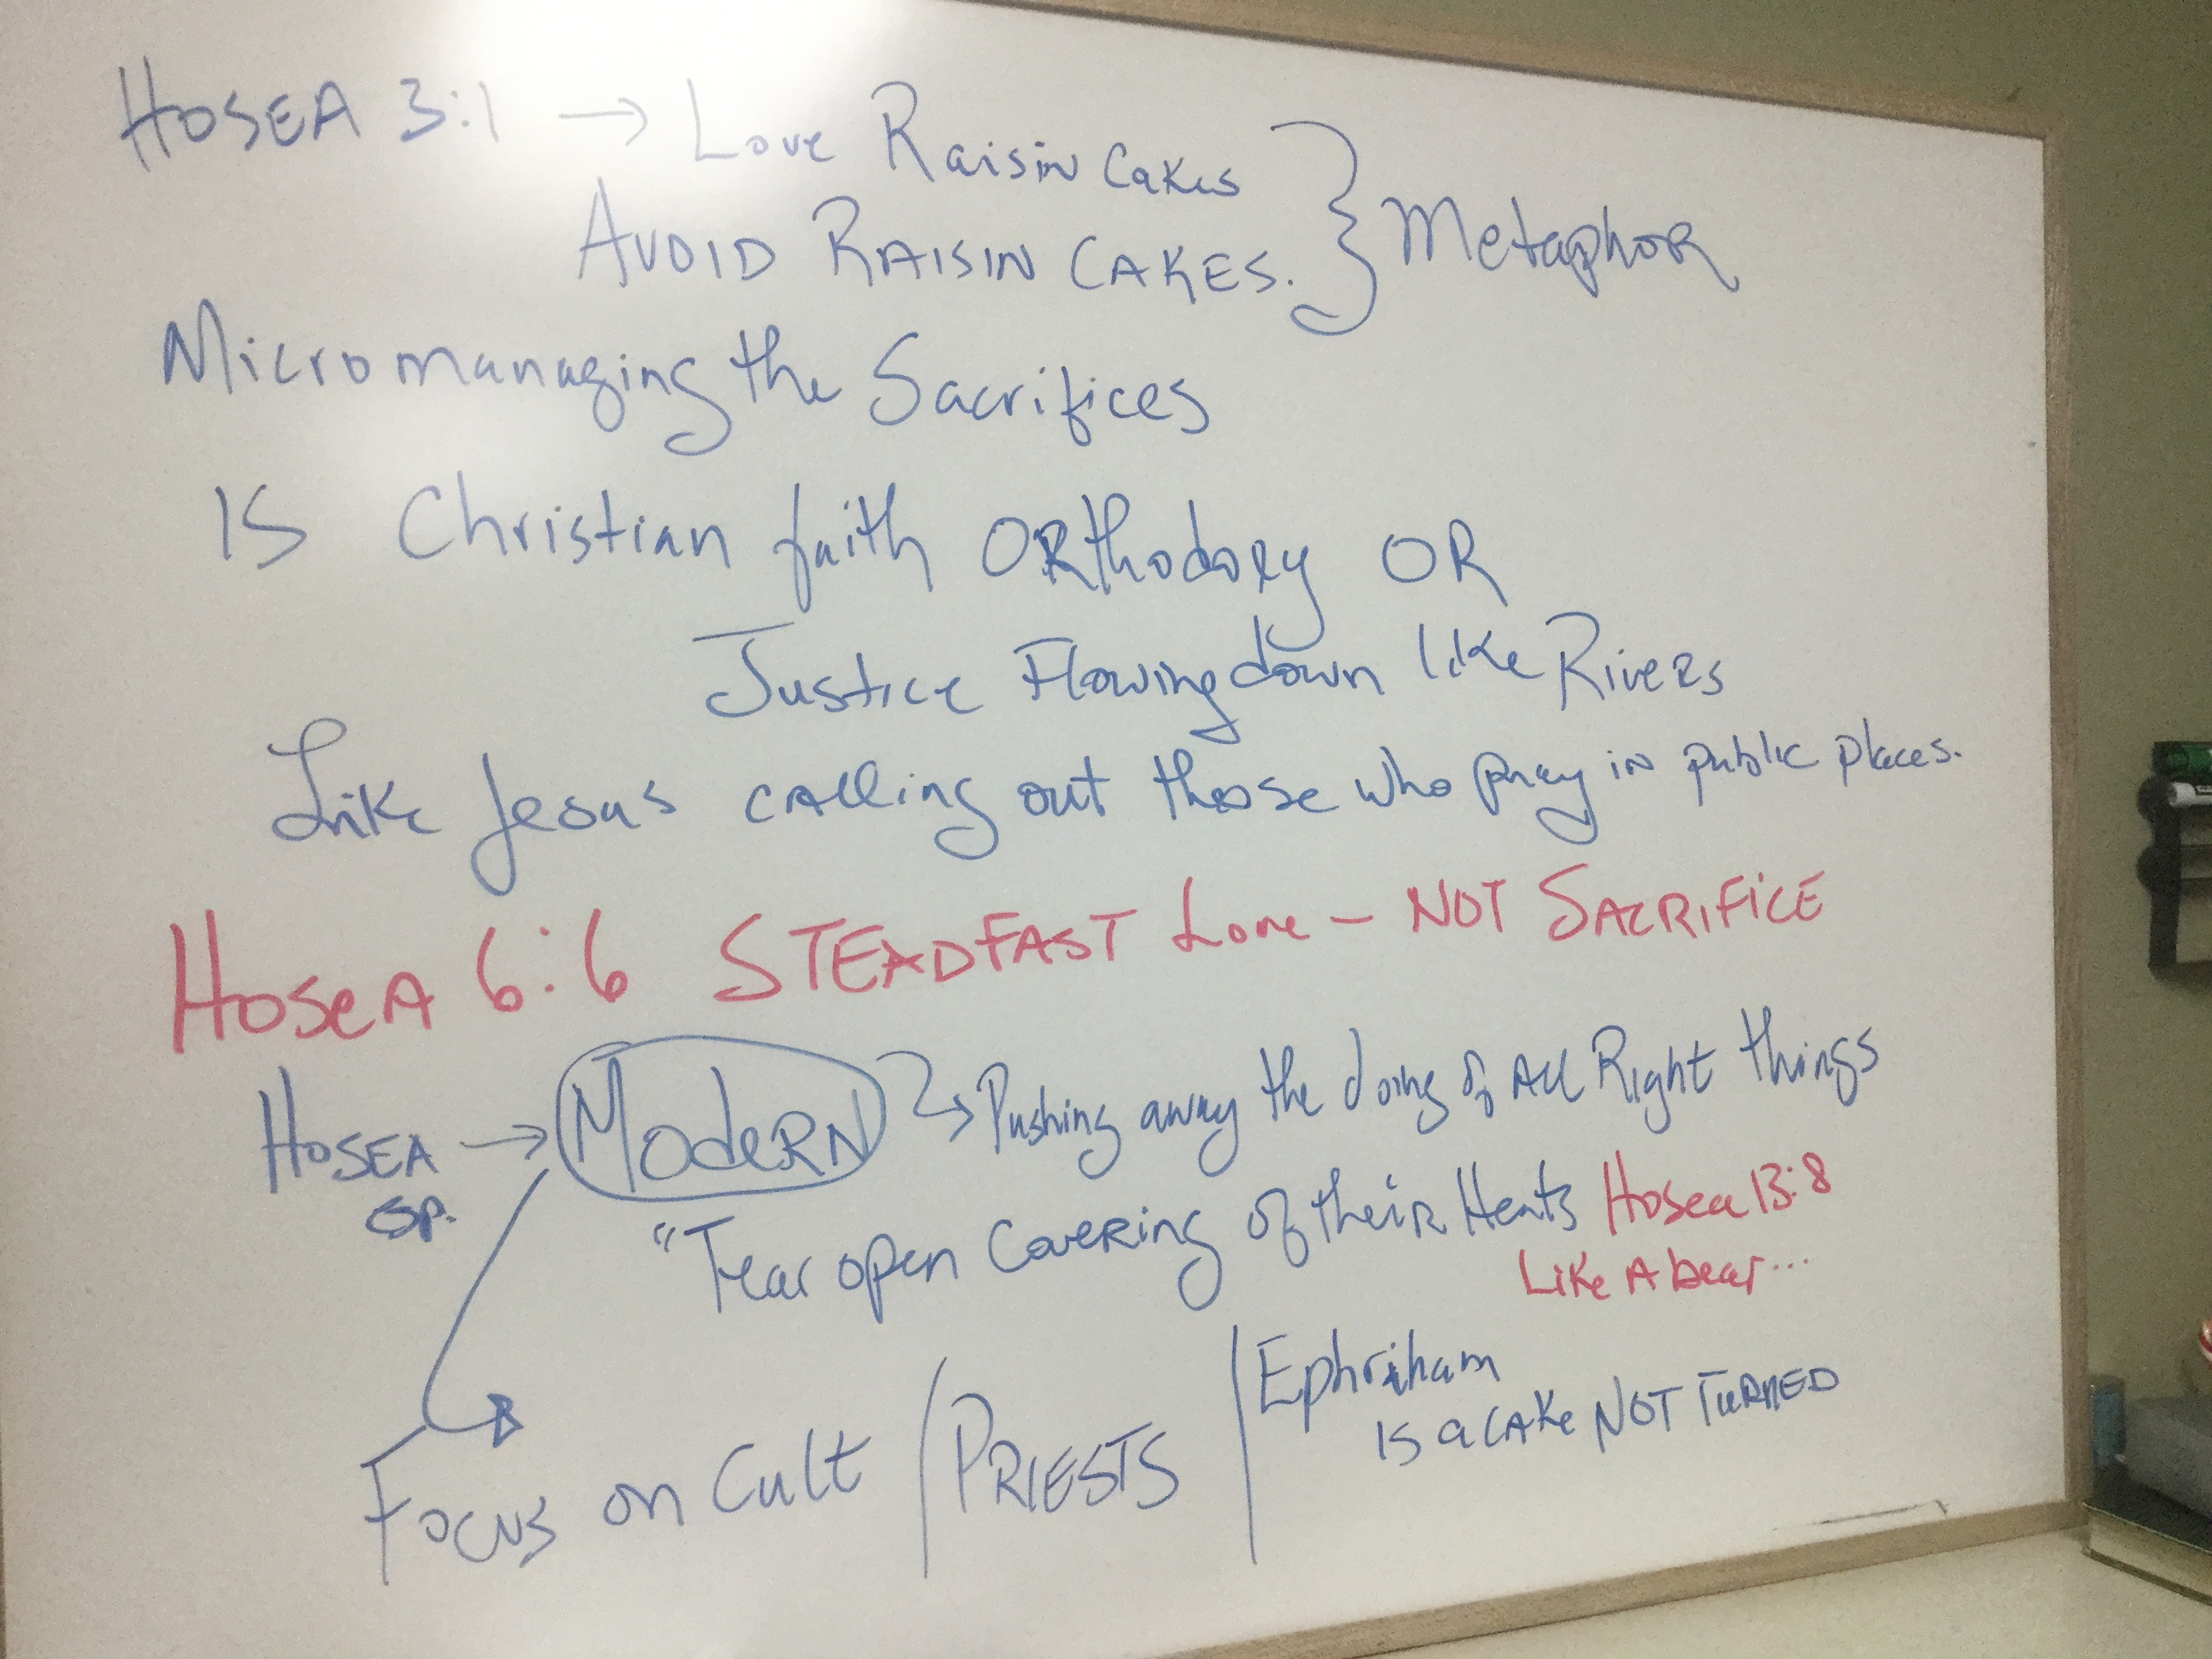 HOSEA 3:1 → Love Raisin Cakes
AVOID RAISIN CAKES. } Metaphor
Micromanaging the Sacrifices
IS Christian faith ORthodoxy OR
Justice Flowing down like Rivers
Like Jesus calling out those who pray in public places.
HOSeA 6:6 STEADFAST Love – NOT SACRIFICE
HOSEA → ModeRN → Pushing away the doing of All Right things
SP.
"Tear open Covering of their Hearts Hosea 13:8
Like A bear...
Focus on Cult / PRIESTS | Ephriham
IS a CAKe NOT TURNED